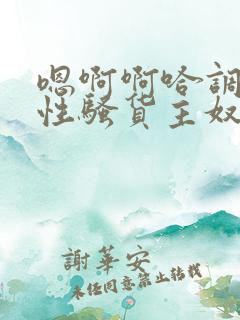 嗯啊啊哈調
性騷貨主奴
謝華安
未经同意禁止转载